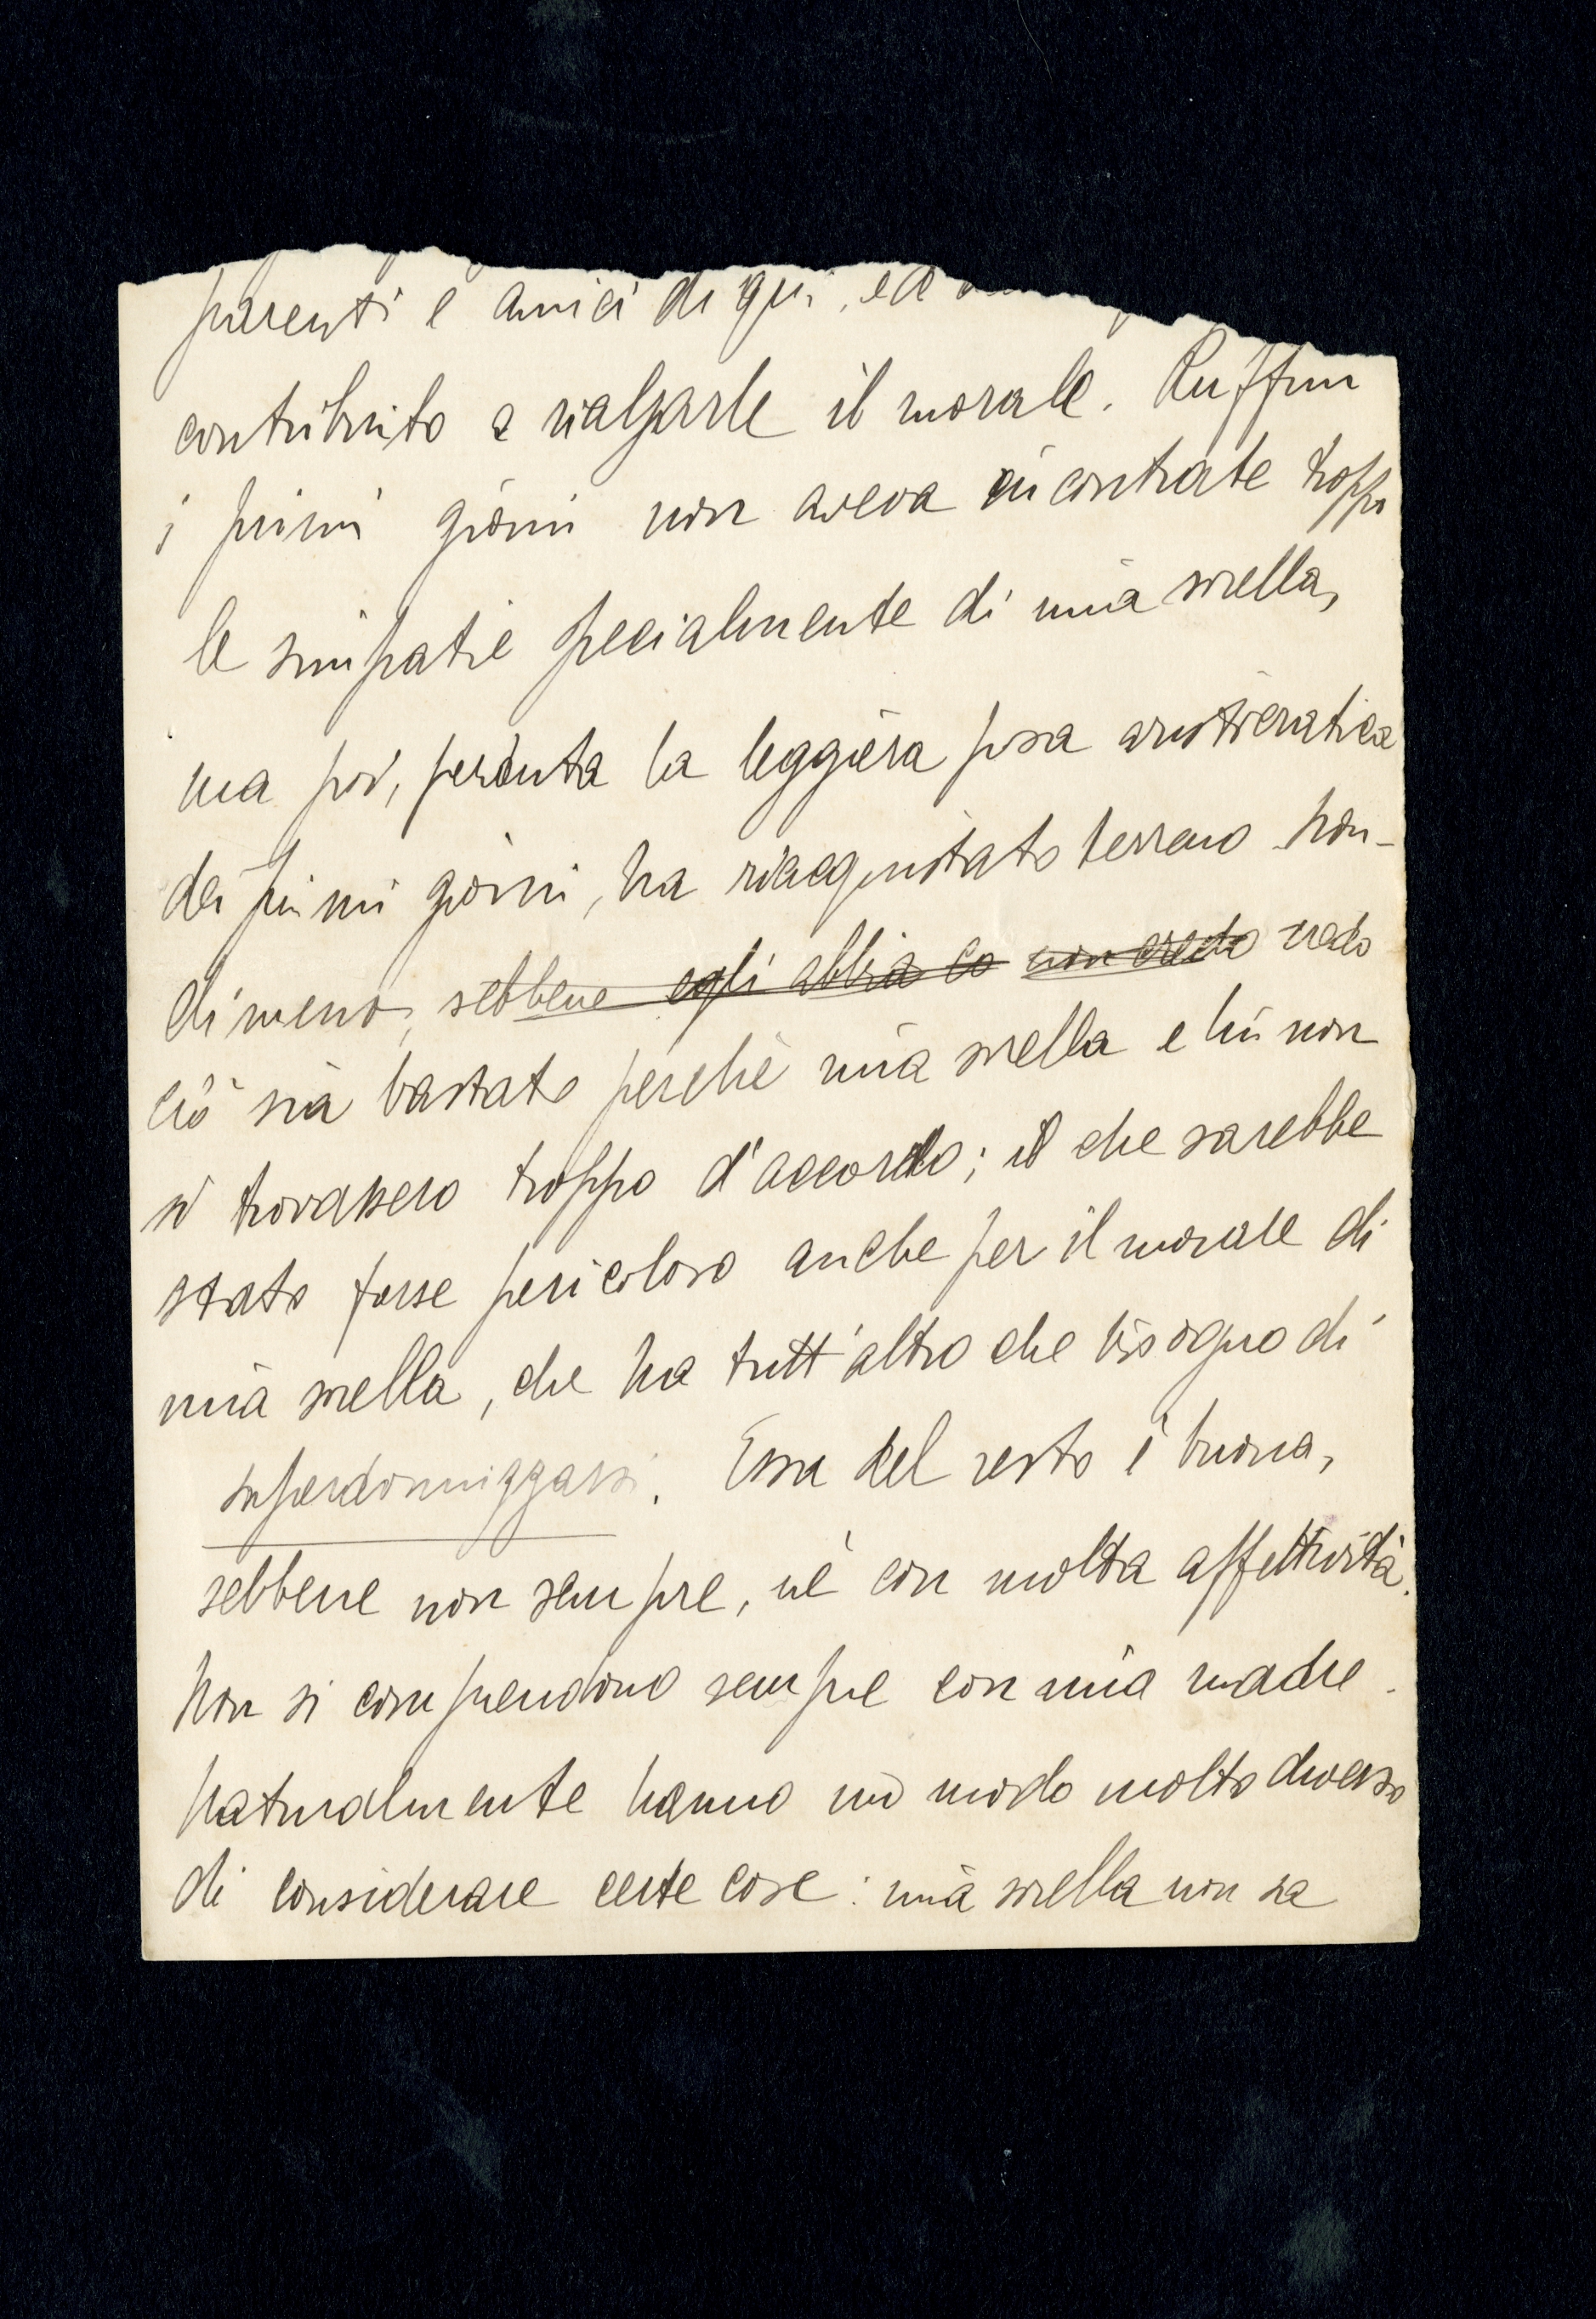 parenti e amici di qui, ed
contribuito a rialzarle il morale. Ruffini
i primi giorni non aveva incontrate troppo
le simpatie specialmente di mia sorella,
ma poi, perduta la leggera posa aristocratica
dei primi giorni, ha riacquistato terreno. Non-
dimeno, sebbene egli abbia co non credo credo
ciò sia bastato perchè mia sorella e lui non
si trovassero troppo d'accordo; il che sarebbe
stato forse pericoloso anche per il morale di
mia sorella, che ha tutt'altro che bisogno di
superdonnizzarsi. Essa del resto è buona,
sebbene non sempre, nè con molta affettività.
Non si comprendono sempre con mia madre.
Naturalmente hanno un modo molto diverso
di considerare certe cose: mia sorella non sa